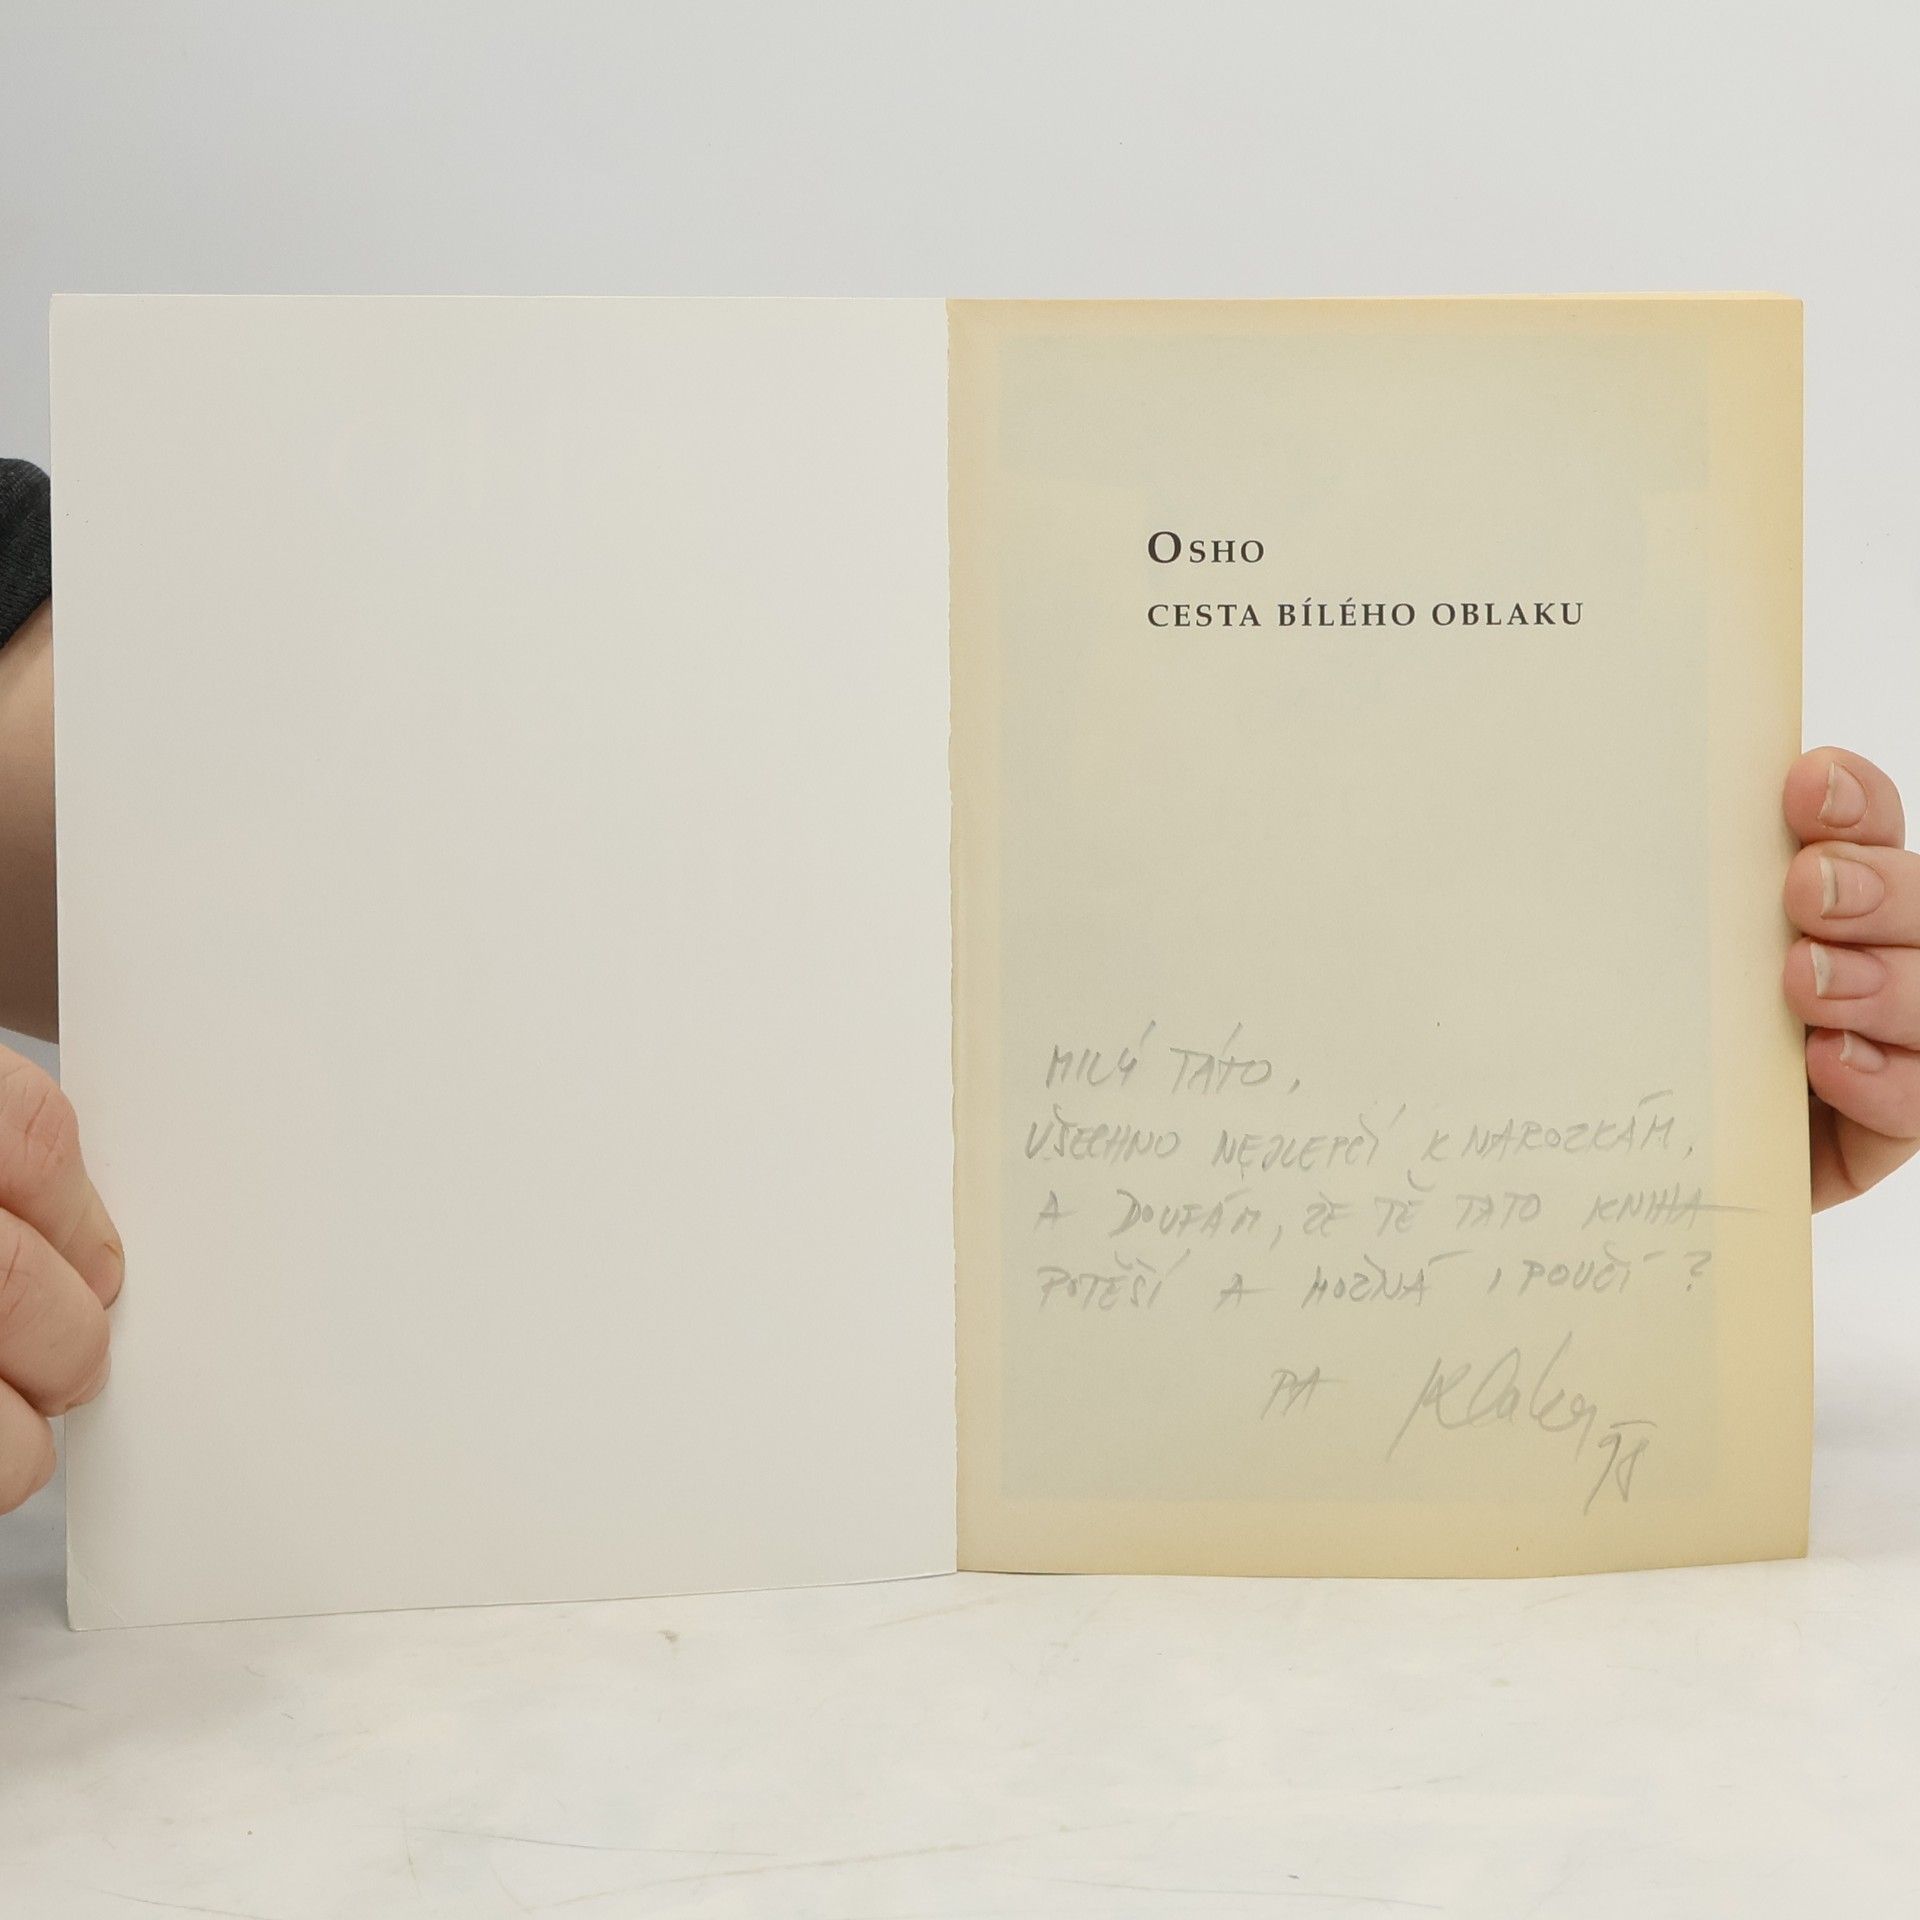 OSHO
CESTA BÍLÉHO OBLAKU
MILÝ TÁTO,
VŠECHNO NEJLEPČÍ K NAROZKÁM,
A DOUFÁM, ŽE TĚ TATO KNIHA
POTĚŠÍ A MOŽNÁ I POUČÍ?
PA
98